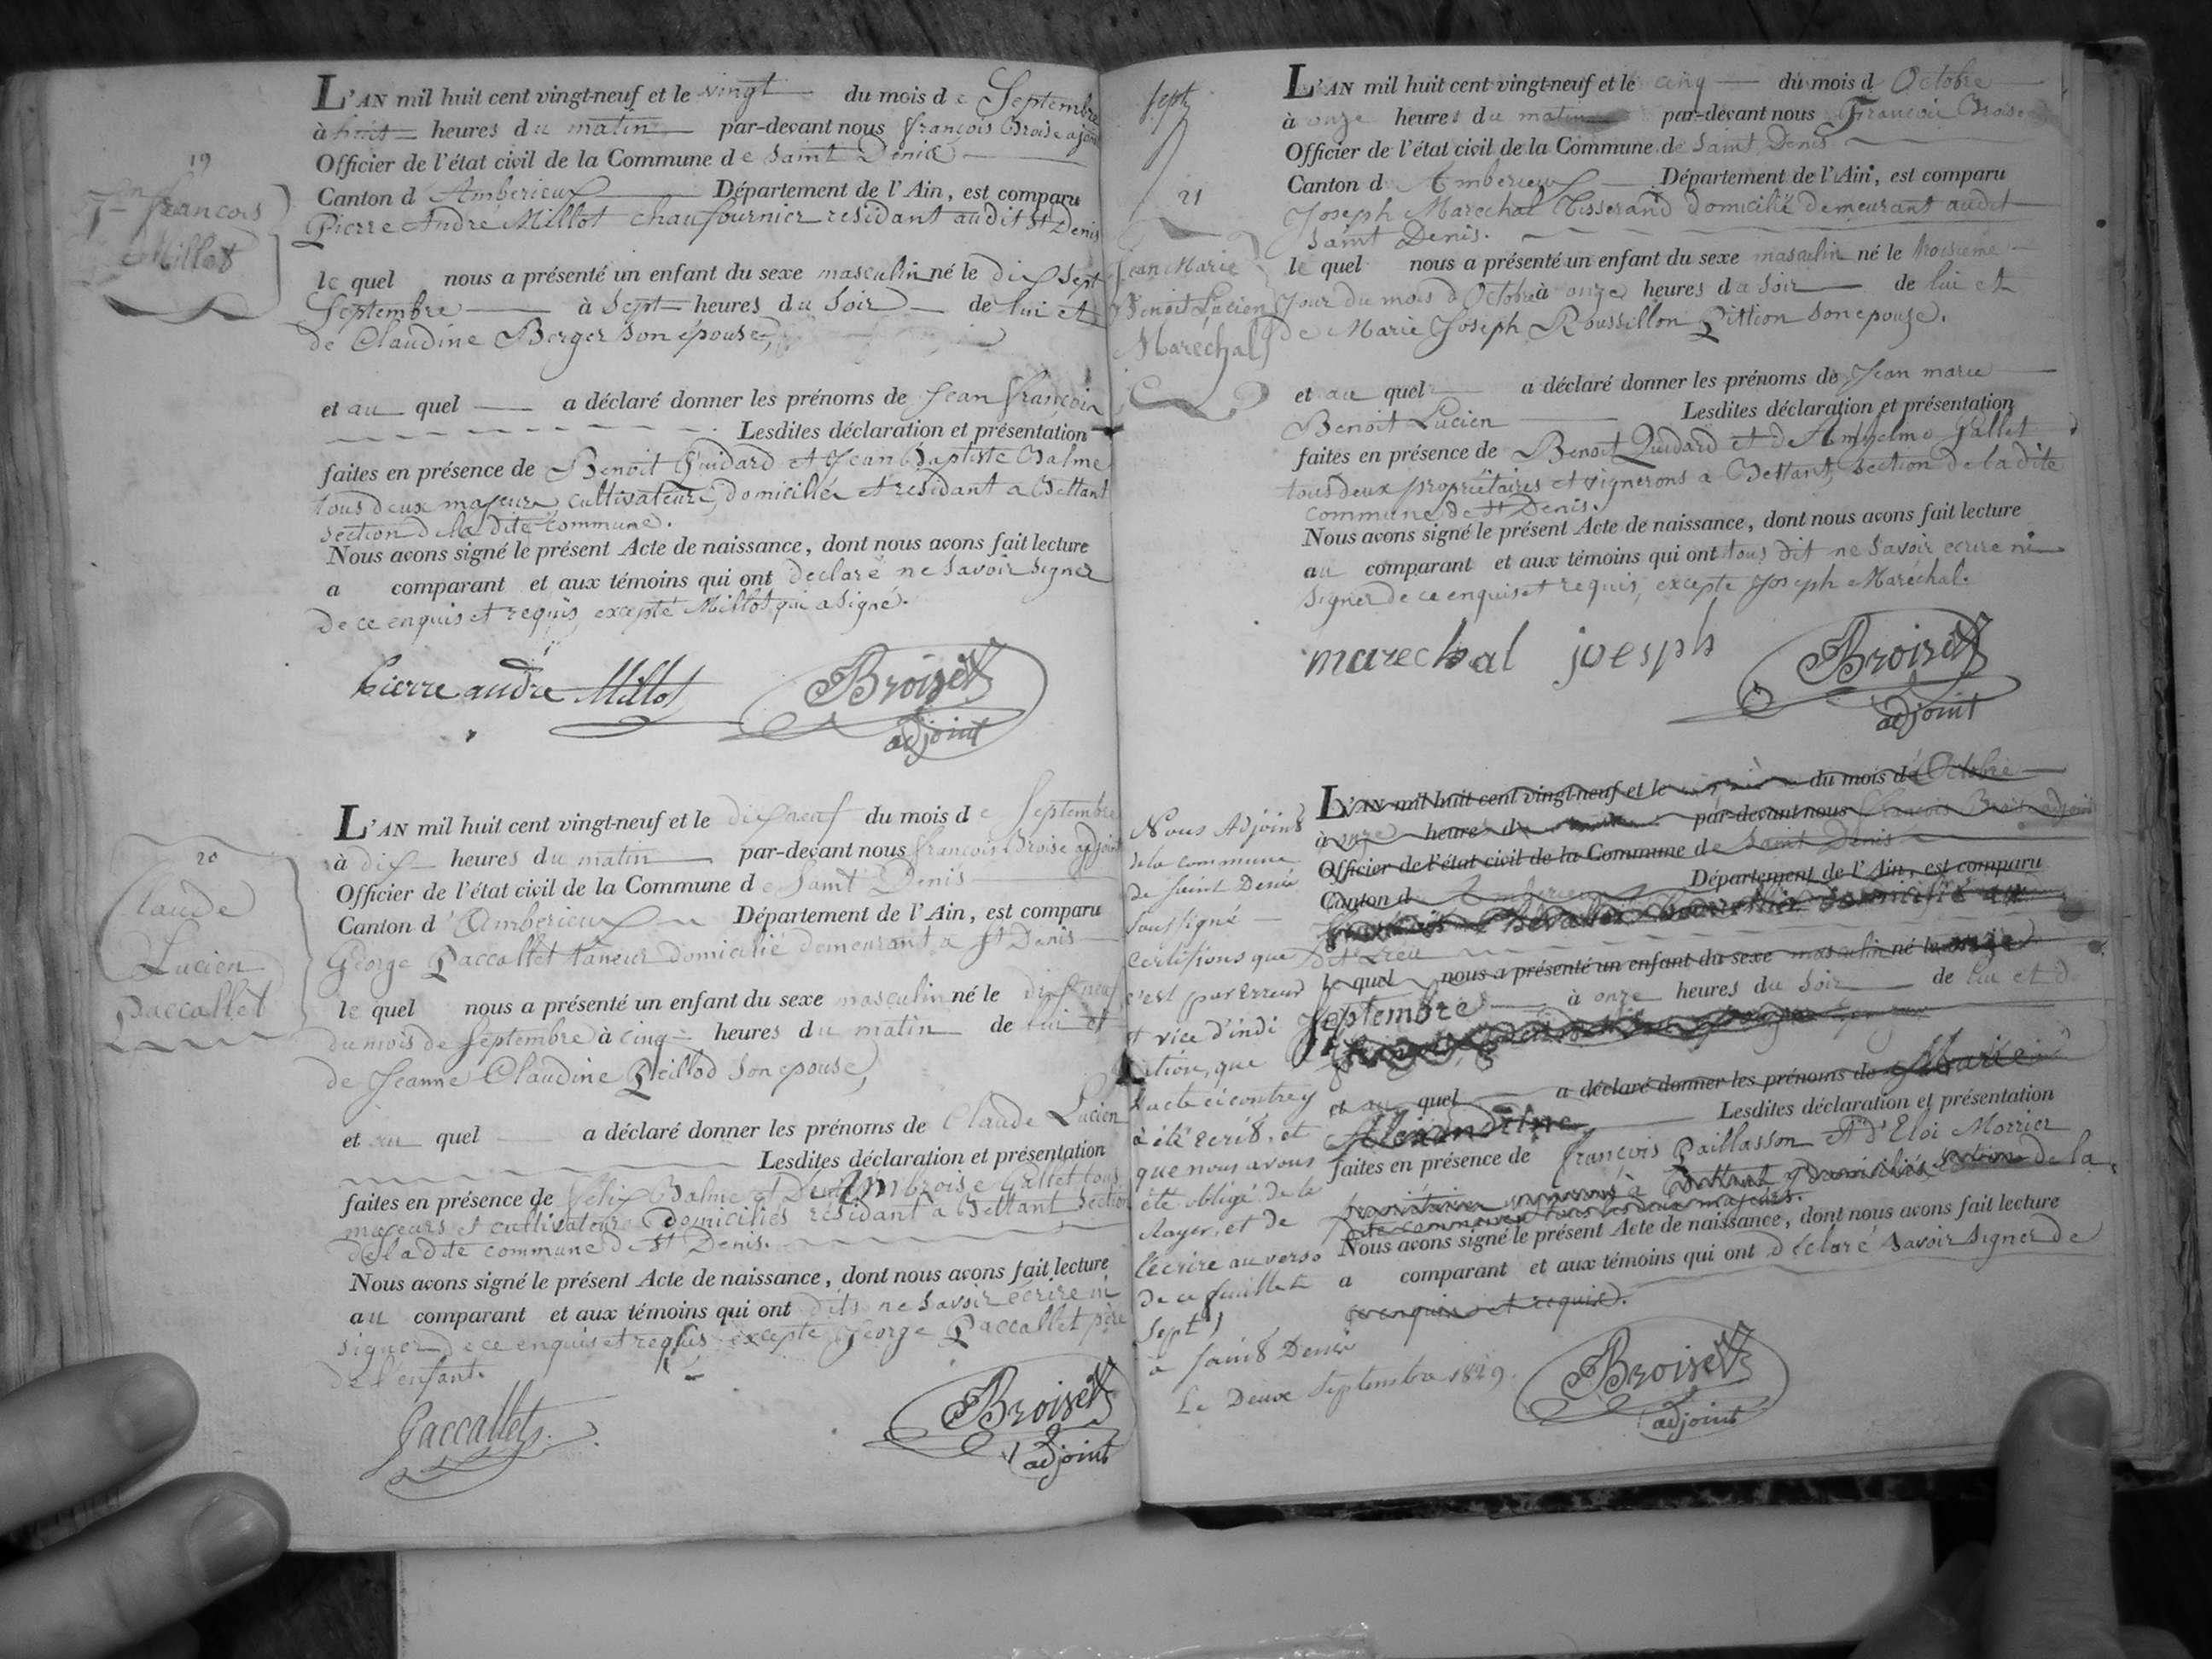 19
Jn françois
Millot
L'AN mil huit cent vingt-neuf et le vingt du mois de Septembre
à huit heures du matin par-devant nous françois Broise adjoint
Officier de l'état civil de la Commune de Saint Denis
Canton d'Amberieux Département de l'Ain, est comparu
Pierre André Millot chaufournier residant audit St Denis
le quel nous a présenté un enfant du sexe masculin né le dix sept
Septembre à Sept heures du Soir de lui et
de Claudine Berger son epouse,
et au quel a déclaré donner les prénoms de Jean françois
Lesdites déclaration et présentation
faites en présence de Benoit Guidard et Jean Baptiste Balme
tous deux majeurs cultivateurs, domiciliés et residant a Bettant
section de la dite commune.
Nous avons signé le présent Acte de naissance, dont nous avons fait lecture
a comparant et aux témoins qui ont declaré ne savoir signer
de ce enquis et requis, excepté Millot qui a signé.
Pierre andre Millot Broiset
adjoint
20
Claude
Lucien
Paccallet
L'AN mil huit cent vingt-neuf et le dix neuf du mois de Septembre
à dix heures du matin par-devant nous françois Broise adjoint
Officier de l'état civil de la Commune de Saint Denis
Canton d'Amberieux Département de l'Ain, est comparu
George Paccallet taneur domicilié demeurant a St Denis
le quel nous a présenté un enfant du sexe masculin né le dix neuf
du mois de Septembre à cinq heures du matin de lui et
de Jeanne Claudine Peillod son epouse,
et au quel a déclaré donner les prénoms de Claude Lucien
Lesdites déclaration et présentation
faites en présence de Felix Balme et Ambroise Gallet tous
majeurs et cultivateurs domiciliés residant a Bettant Section
de la dite commune de St Denis.
Nous avons signé le présent Acte de naissance, dont nous avons fait lecture
au comparant et aux témoins qui ont dits ne savoir écrire ni
signer de ce enquis et requis excepte George Paccallet père
de l'enfant.
Paccallet Broiset
adjoint
Sept
21
Jean Marie
Benoit Lucien
Marechal
L'AN mil huit cent vingt-neuf et le cinq du mois d Octobre
à onze heures du matin par-devant nous François Broise
Officier de l'état civil de la Commune de Saint Denis
Canton d Amberieux Département de l'Ain, est comparu
Joseph Marechal Tisserand domicilié demeurant audit
Saint Denis.
le quel nous a présenté un enfant du sexe masculin né le troisieme
Jour du mois d'Octobre à onze heures du Soir de lui et
de Marie Joseph Roussillon Pittion son epouse.
et au quel a déclaré donner les prénoms de Jean marie
Benoit Lucien Lesdites déclaration et présentation
faites en présence de Benoit Quidard et de Gallet
tous deux propriétaires et vignerons a Bettant, section de la dite
commune de St Denis.
Nous avons signé le présent Acte de naissance, dont nous avons fait lecture
au comparant et aux témoins qui ont tous dit ne savoir ecrire ni
signer de ce enquis et requis, excepte Joseph Maréchal.
marechal joesph Broiset
adjoint
Nous Adjoint
de la commune
de Saint Denis
soussigné
certifions que
c'est par Erreur
et vice d'indi
cation, que
l'acte ci contre y
à été ecrit, et
que nous avons
été obligé de le
Rayer, et de
l'écrire au verso
de ce feuillet
Sept
à Saint Denis
Le Deux Septembre 1829.
L'AN mil huit cent vingt-neuf et le du mois d'Octobre
à onze heures du par-devant nous François Broise adjoint
Officier de l'état civil de la Commune de Saint Denis
Canton d Amberieux Département de l'Ain, est comparu
Chevallier domicilié au
dit Lieu
le quel nous a présenté un enfant du sexe masculin né le onze
Septembre à onze heures du Soir de lui et d
et au quel a déclaré donner les prénoms de Marie
Alexandrine Lesdites déclaration et présentation
faites en présence de françois Paillasson et d'Eloi Morrier
à Bettant domiciliés section de la
dite commune tous les deux majeurs.
Nous avons signé le présent Acte de naissance, dont nous avons fait lecture
a comparant et aux témoins qui ont déclaré savoir signer de
ce enquis et requis.
Broiset
adjoint